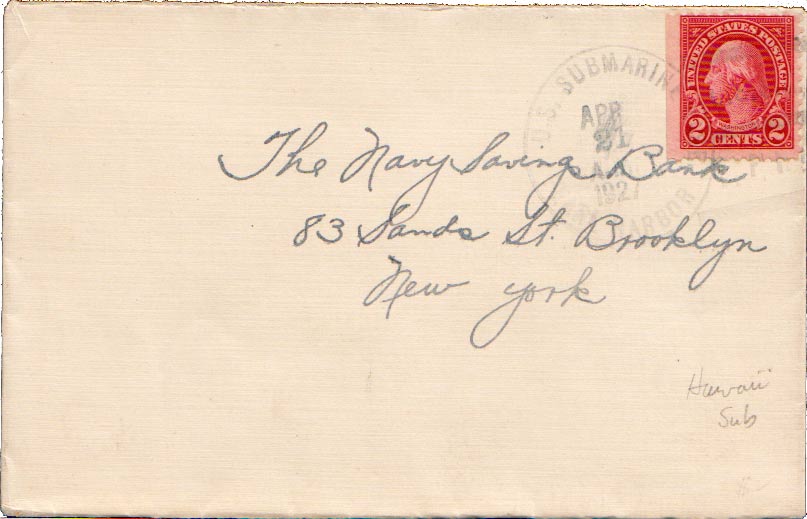 UNITED STATES POSTAGE
WASHINGTON
2 CENTS 2
U.S. SUBMARINE
APR
21
A.M.
1927
HARBOR
The Navy Savings Bank
83 Sands St. Brooklyn
New York
Hawaii
Sub